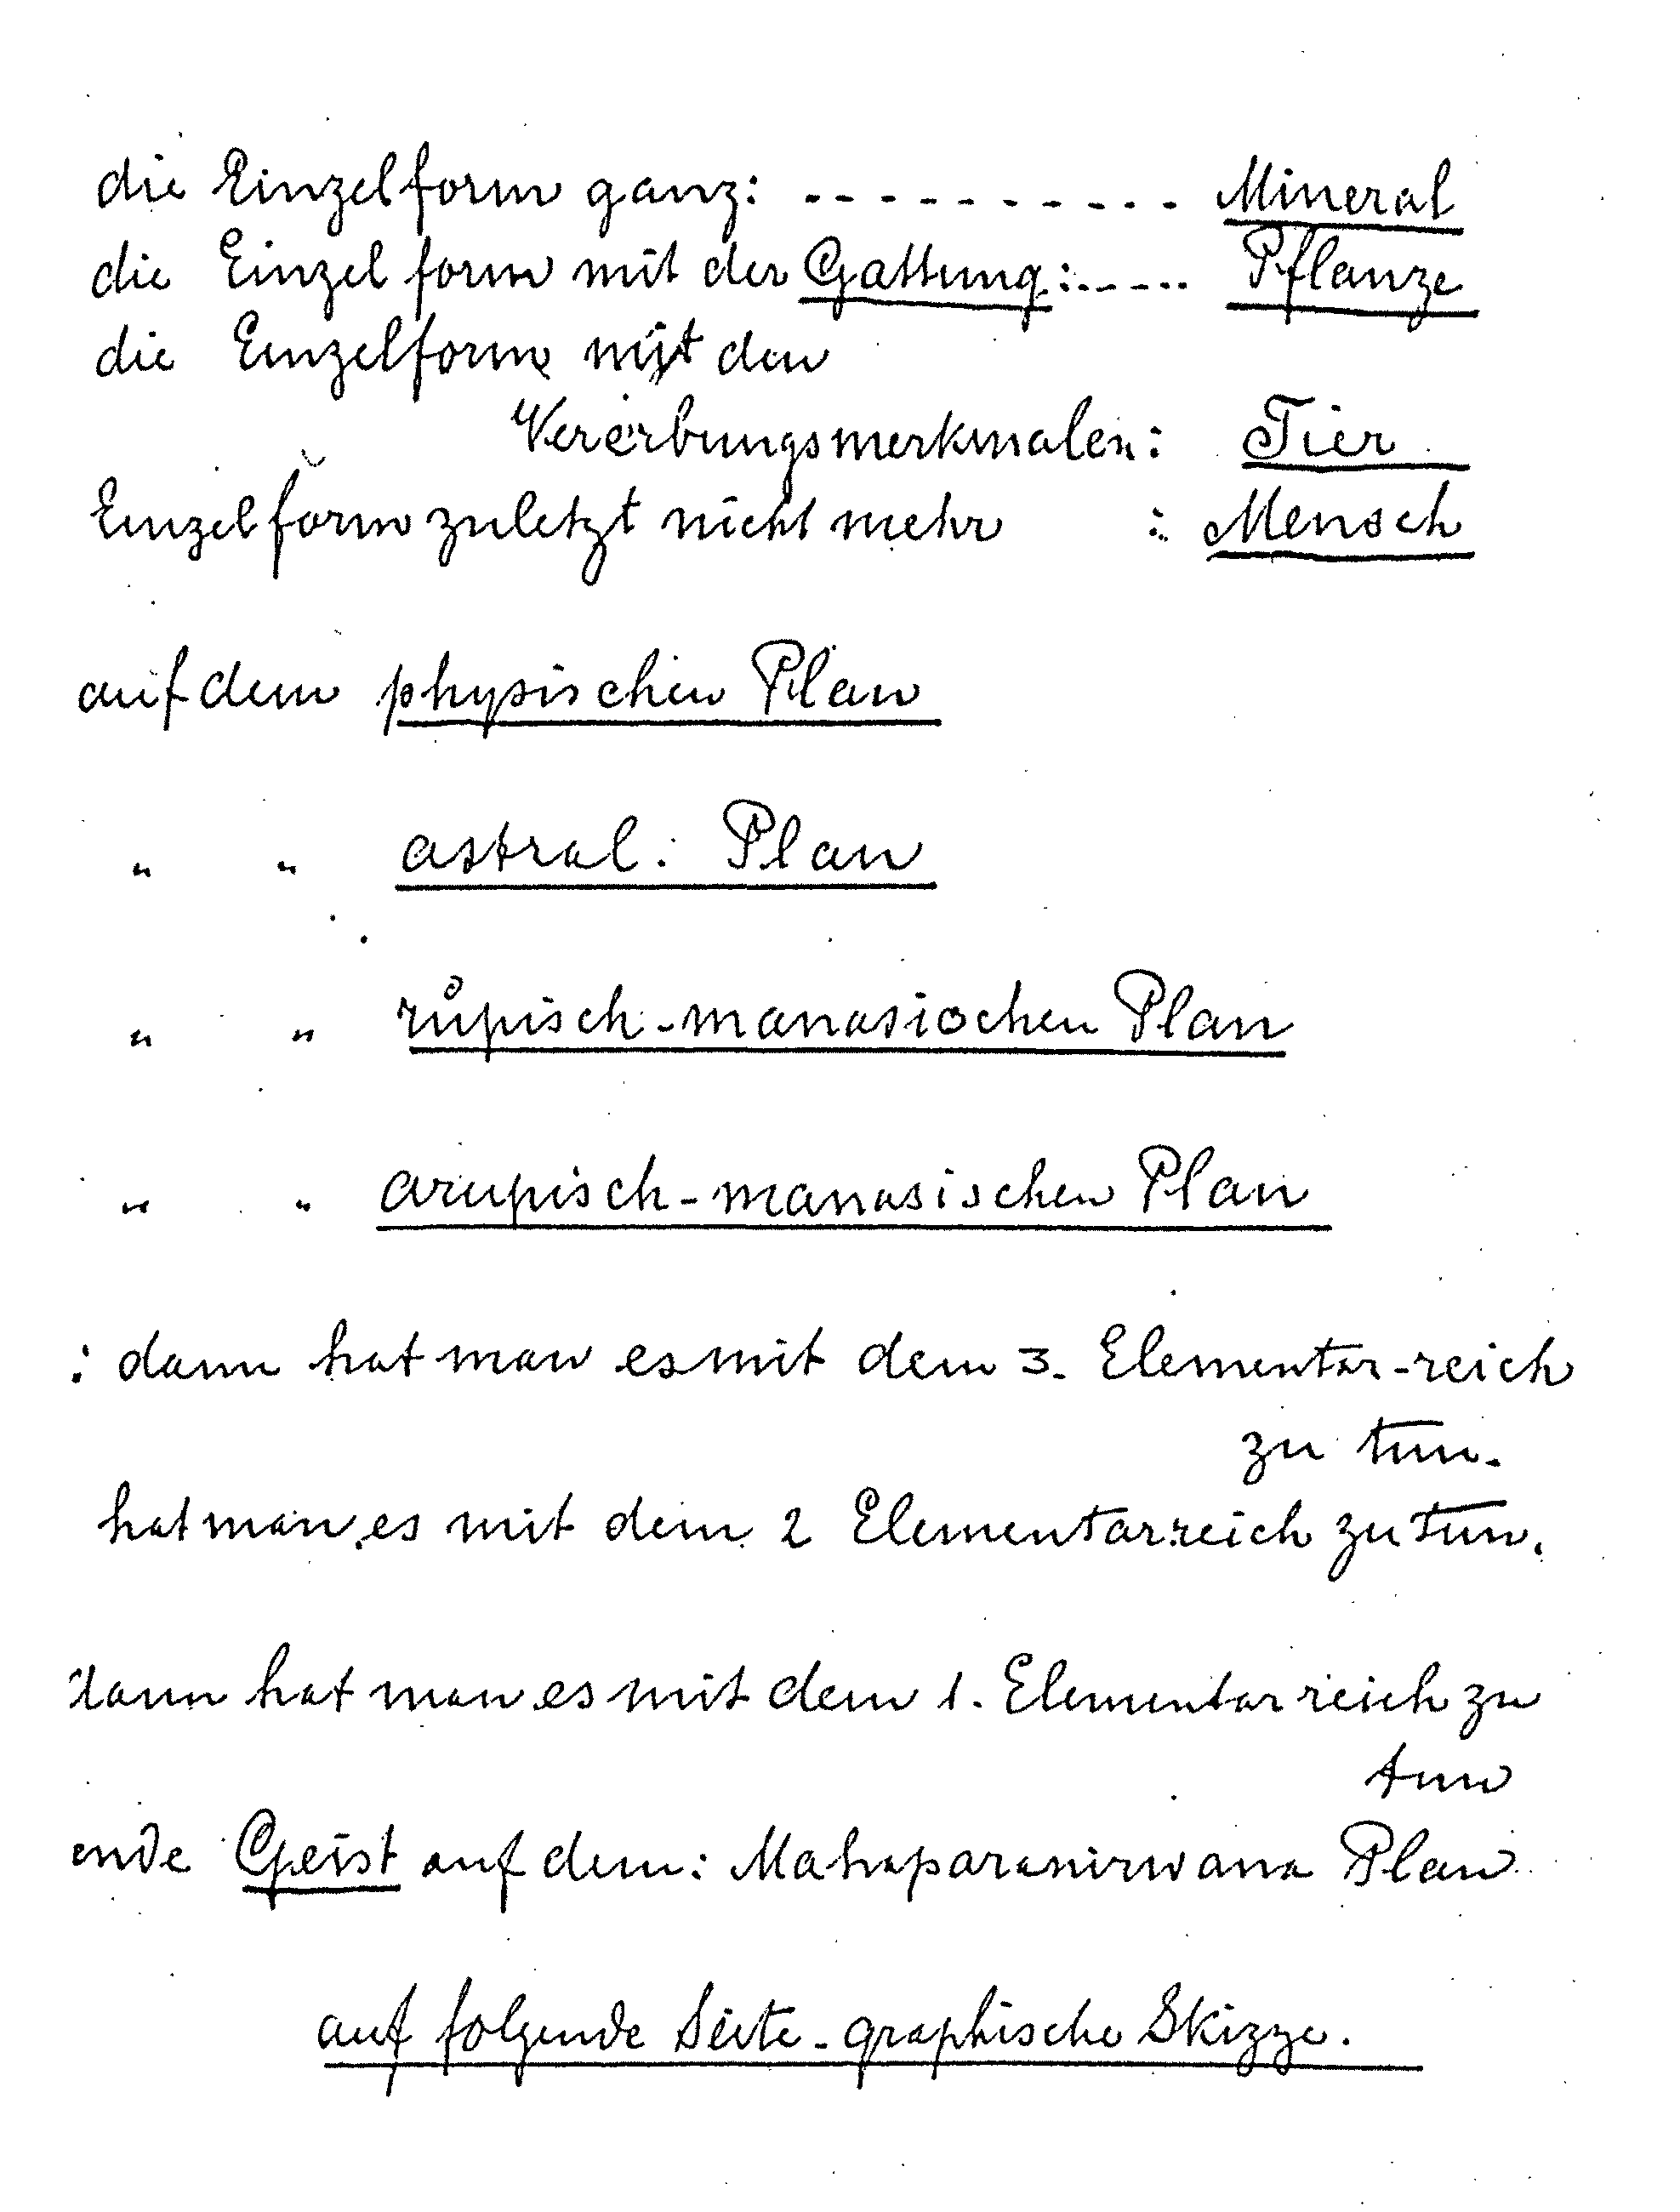 die Einzelform ganz: ---------- Mineral
die Einzelform mit der Gattung:----- Pflanze
die Einzelform mit den
Vererbungsmerkmalen: Tier
Einzelform zuletzt nicht mehr : Mensch
auf dem physischen Plan
" " astral. Plan
" " rupisch-manasischen Plan
" " arupisch-manasischen Plan
: dann hat man es mit dem 3. Elementar-reich
zu tun.
hat man es mit dem 2 Elementarreich zu tun.
dann hat man es mit dem 1. Elementarreich zu
tun
ende Geist auf dem: Mahaparanirwana Plan
auf folgende Seite - graphische Skizze.